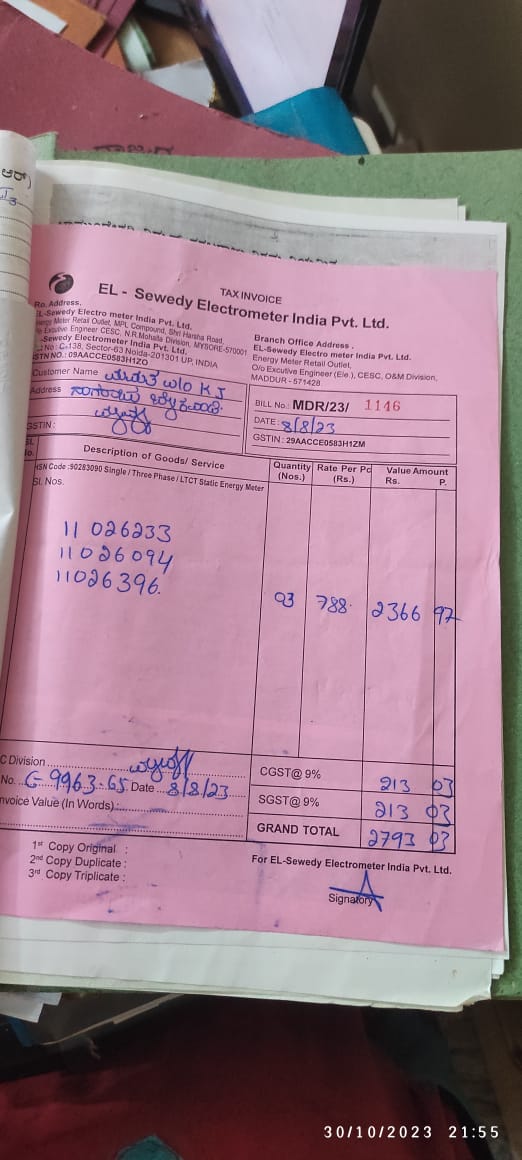 TAX INVOICE
EL - Sewedy Electrometer India Pvt. Ltd.
Ro. Address.
EL-Sewedy Electro meter India Pvt. Ltd.
Energy Meter Retail Outlet, MPL Compound, Shri Harsha Road,
Executive Engineer CESC, N.R.Mohalla Division, MYSORE-570001
-Sewedy Electrometer India Pvt. Ltd.
No : C-138, Sector-63 Noida-201301 UP, INDIA
GSTN NO.: 09AACCE0583H1ZO
Branch Office Address .
EL-Sewedy Electro meter India Pvt. Ltd.
Energy Meter Retail Outlet,
O/o Executive Engineer (Ele.), CESC, O&M Division,
MADDUR - 571428
Customer Name W/o K J
Address
GSTIN :
BILL No.: MDR/23/ 1146
DATE : 8/8/23
GSTIN : 29AACCE0583H1ZM
Description of Goods/ Service
Quantity (Nos.)
Rate Per Pc (Rs.)
Value Amount
Rs. P.
HSN Code :90283090 Single / Three Phase / LTCT Static Energy Meter
Sl. Nos.
11 026233
11026094
11026396.
03 788. 2366 97
C Division
No. G-9963.65 Date 8/8/23
Invoice Value (In Words) :
CGST@ 9% 213 03
SGST@ 9% 213 03
GRAND TOTAL 2793 03
1st Copy Original :
2nd Copy Duplicate :
3rd Copy Triplicate :
For EL-Sewedy Electrometer India Pvt. Ltd.
Signatory
30/10/2023 21:55